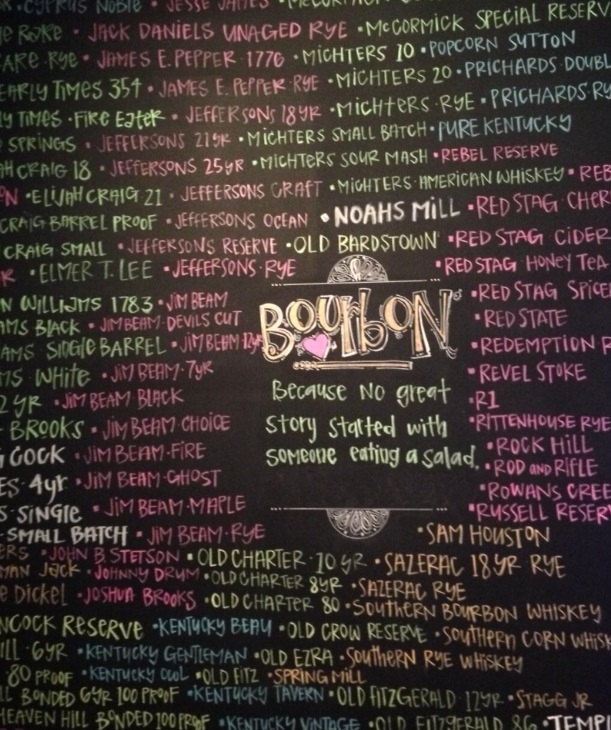 · CYPRUS NOBLE · JESSE JAMES ·
· JACK DANIELS UNAGED RYE · McCORMICK SPECIAL RESERV
RYE · JAMES E. PEPPER 1776 · MICHTERS 10 · POPCORN SUTTON
EARLY TIMES 354 · JAMES E. PEPPER · RYE · MICHTERS 20 · PRICHARDS DOUBL
Y TIMES · FIRE EATER · JEFFERSONS 18YR · MICHTERS · RYE · PRICHARDS RY
SPRINGS · JEFFERSONS 21YR · MICHTERS SMALL BATCH · PURE KENTUCKY
AH CRAIG 18 · JEFFERSONS 25YR · MICHTERS SOUR MASH · REBEL RESERVE
N · ELIJAH CRAIG 21 · JEFFERSONS CRAFT · MICHTERS · AMERICAN WHISKEY · REB
CRAIG BARREL PROOF · JEFFERSONS OCEAN · NOAHS MILL · RED STAG · CHER
CRAIG SMALL · JEFFERSONS RESERVE · OLD BARDSTOWN · RED STAG CIDER
R · ELMER T. LEE · JEFFERSONS · RYE · RED STAG HONEY TEA
N WILLIAMS 1783 · JIM BEAM · RED STAG SPICE
AMS BLACK · JIM BEAM · DEVILS CUT · RED STATE
AMS SINGLE BARREL · JIM BEAM 12yr · REDEMPTION R
MS · WHITE · JIM BEAM · 7yr · REVEL STOKE
2 YR · JIM BEAM · BLACK · R1
BROOKS · JIM BEAM · CHOICE · RITTENHOUSE RYE
COCK · JIM BEAM · FIRE · ROCK HILL
ES · 4yr · JIM BEAM · GHOST · ROD AND RIFLE
S · SINGLE · JIM BEAM · MAPLE · ROWANS CREE
· SMALL BATCH · JIM BEAM · RYE · RUSSELL RESERV
BOURBON
Because No great
story started with
someone eating a salad.
· SAM HOUSTON
ERS · JOHN B. STETSON · OLD CHARTER · 10 YR · SAZERAC 18 YR RYE
MAN JACK · JOHNNY DRUM · OLD CHARTER 8YR · SAZERAC RYE
E DICKEL · JOSHUA BROOKS · OLD CHARTER 80 · SOUTHERN BOURBON WHISKEY
NCOCK RESERVE · KENTUCKY BEAU · OLD CROW RESERVE · SOUTHERN CORN WHISK
ILL · 6YR · KENTUCKY GENTLEMAN · OLD EZRA · SOUTHERN RYE WHISKEY
80 PROOF · KENTUCKY OWL · OLD FITZ · SPRING MILL
LL BONDED 6YR 100 PROOF · KENTUCKY TAVERN · OLD FITZGERALD · 12YR · STAGG JR
HEAVEN HILL BONDED 100 PROOF · KENTUCKY VINTAGE · OLD FITZGERALD 86 · TEMPL